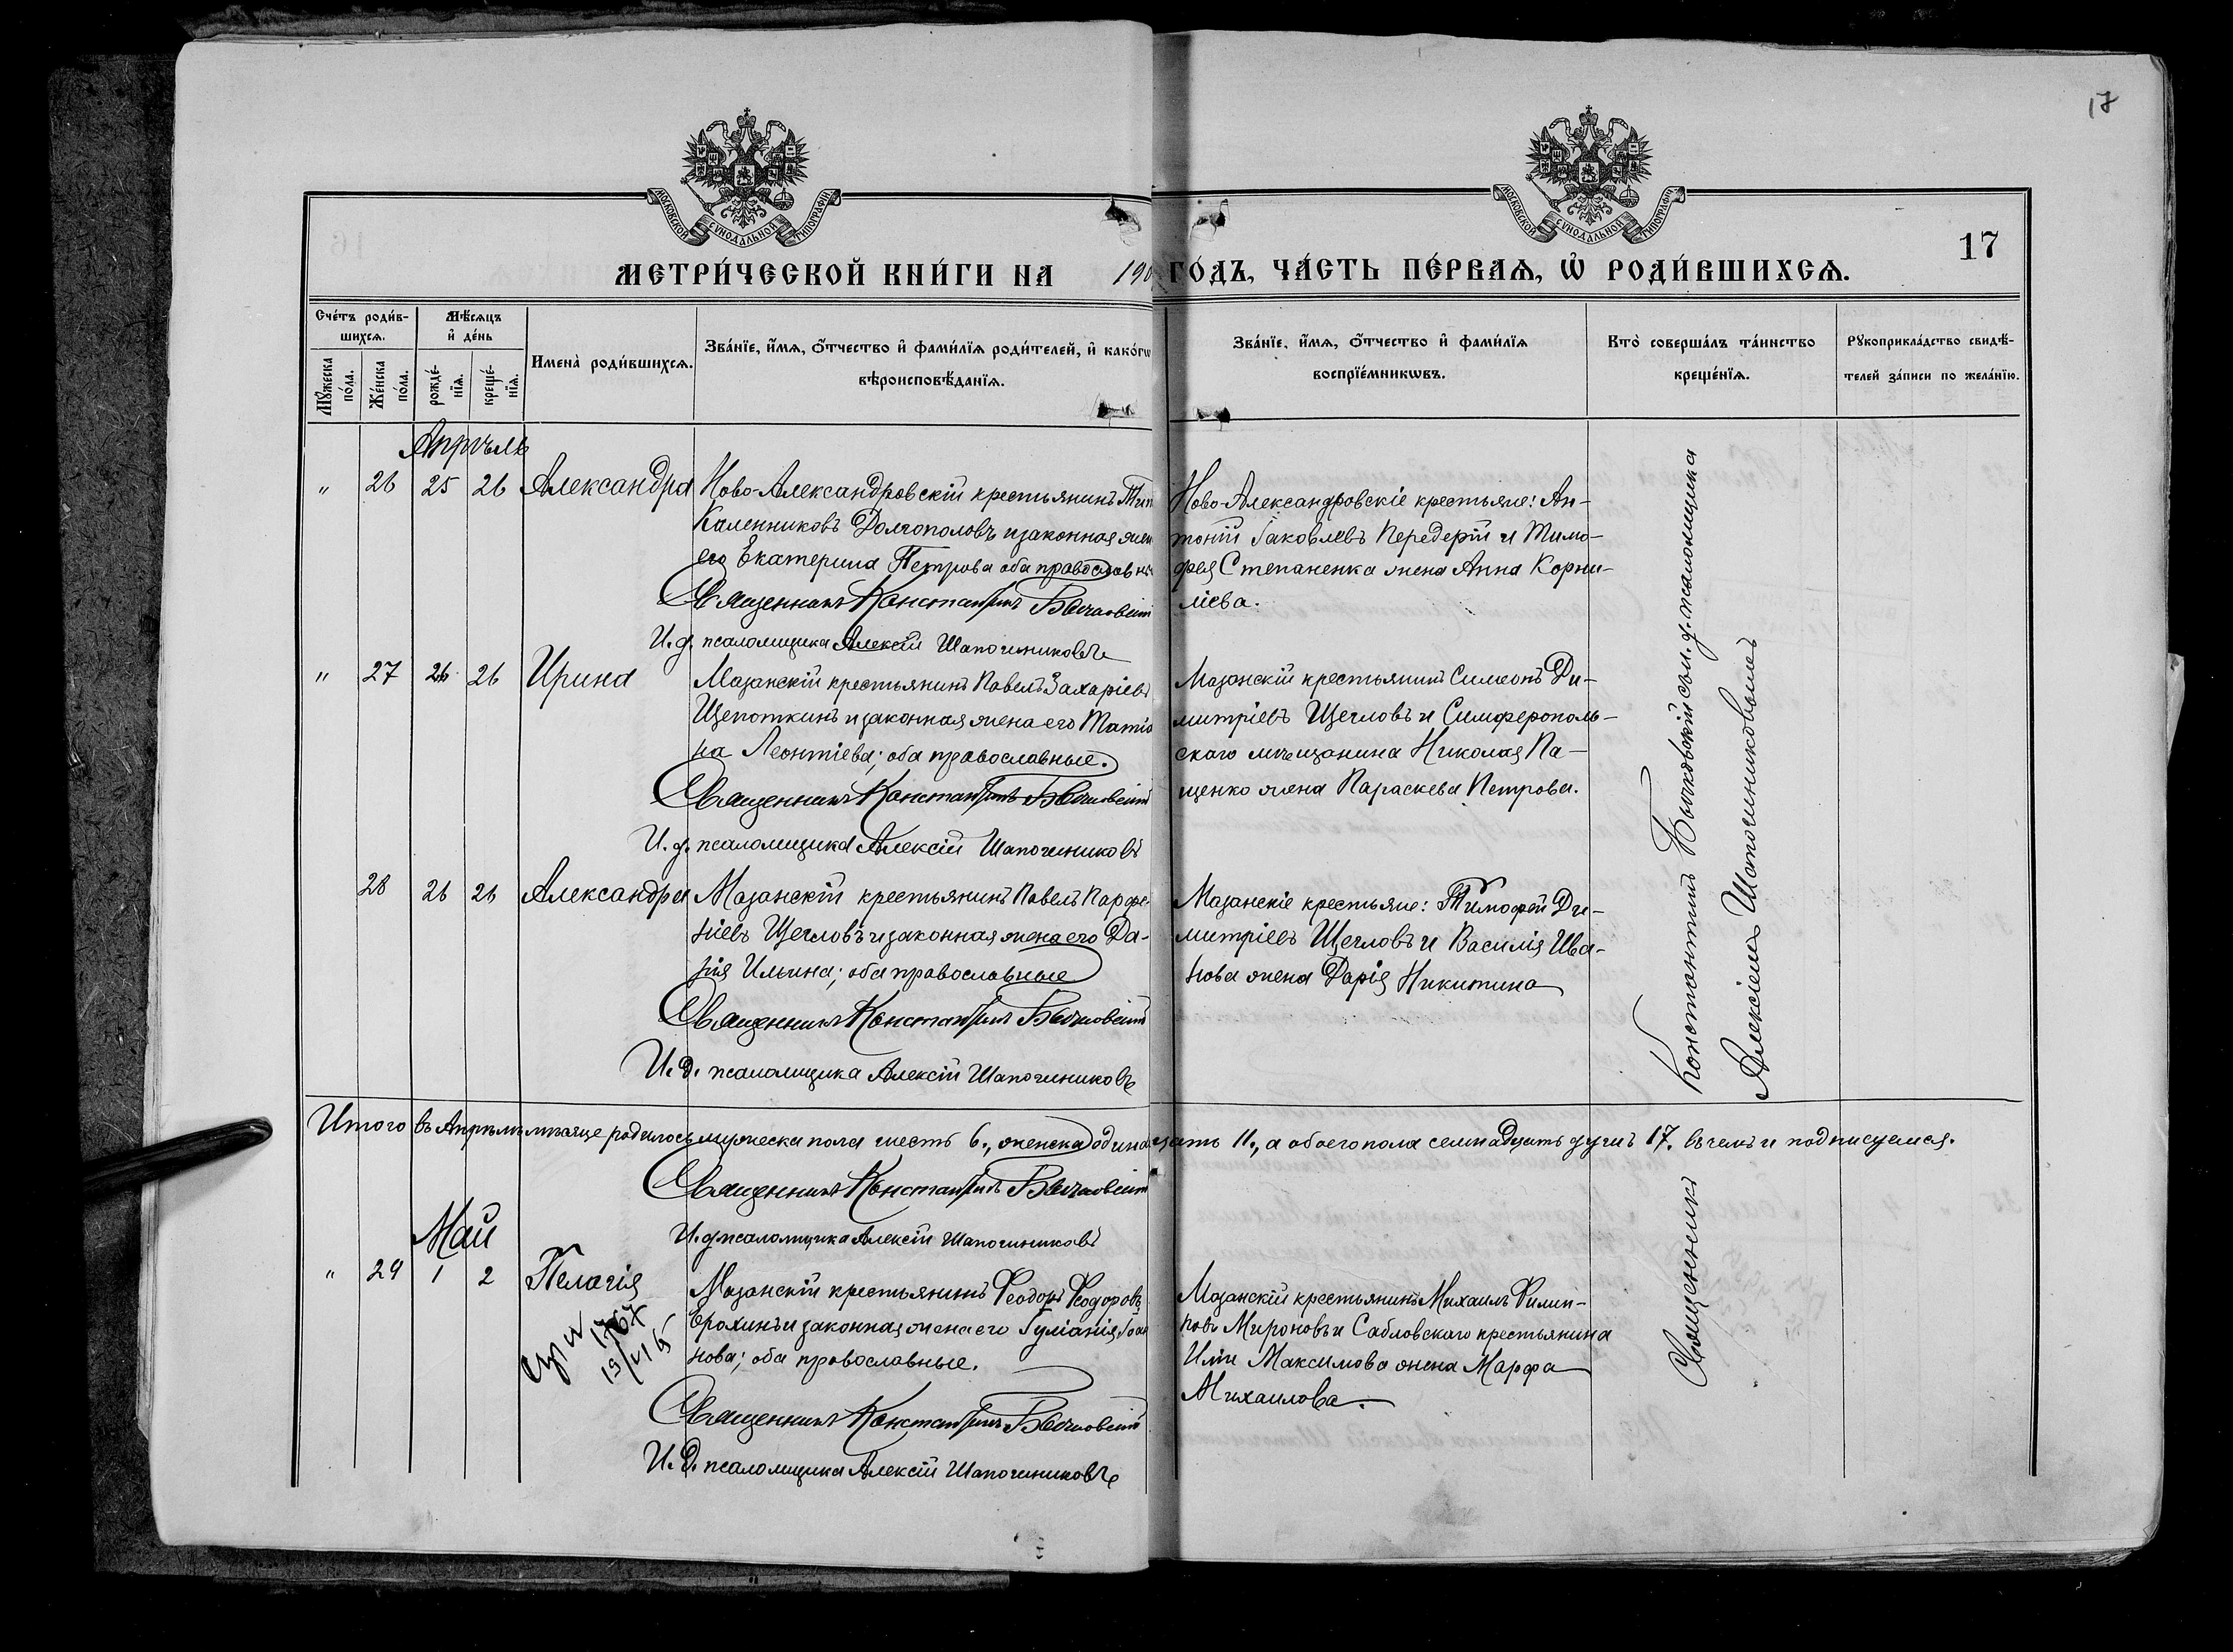 17
МОСКОВСКОЙ СѴНОДАЛЬНОЙ ТИПОГРАФІИ
МОСКОВСКОЙ СѴНОДАЛЬНОЙ ТИПОГРАФІИ
17
МЕТРИ́ЧЕСКОЙ КНИ́ГИ НА 190
ГО́ДЪ, ЧА́СТЬ ПЕ́РВАѦ, Ѡ҆ РОДИ́ВШИХСѦ.
Сче́тъ роди́в-
шихсѧ.
Мꙋ́жеска по́ла.
Же́нска по́ла.
Мѣ́сѧцъ
и҆ де́нь
рожде́-нїѧ.
креще́-нїѧ.
Имена̀ роди́вшихсѧ.
Зва́нїе, и҆́мѧ, ѻ҆́тчество и҆ фами́лїѧ роди́телей, и҆ како́гѡ
вѣроисповѣ́данїѧ.
Зва́нїе, и҆́мѧ, ѻ҆́тчество и҆ фами́лїѧ
воспрїе́мникѡвъ.
Кто̀ соверша́лъ та́инство
креще́нїѧ.
Рꙋкоприкла́дство свидѣ́-
телей за́писи по жела́нїю.
Апрѣль
" 26 25 26 Александра
Ново-Александровскій крестьянинъ Тит
Каленниковъ Долгополовъ и законная жен
его Екатерина Петрова оба православны
Священникъ Константинъ Бычковскій
И. д. псаломщика Алексій Шапочниковъ
Ново-Александровскіе крестьяне: Ан-
тоній Іаковлевъ Передерій и Тимо-
фея Степаненка жена Анна Корни-
ліева.
" 27 26 26 Ирина
Мазанскій крестьянинъ Павелъ Захаріевъ
Щепоткинъ и законная жена его Татіа
на Леонтіева; оба православные.
Священникъ Константинъ Бычковскій
И. д. псаломщика Алексій Шапочниковъ
Мазанскій крестьянинъ Симеонъ Ди-
митріевъ Щегловъ и Симферополь-
скаго мѣщанина Николая Па-
щенко жена Параскева Петрова.
28 26 26 Александра
Мазанскій крестьянинъ Павелъ Парфе-
ніевъ Щегловъ и законная жена его Да-
рія Ильина; оба православные
Священникъ Константинъ Бычковскій
И. д. псаломщика Алексій Шапочниковъ
Мазанскіе крестьяне: Тимофей Ди-
митріевъ Щегловъ и Василія Ива-
нова жена Дарія Никитина
Итого въ Апрѣлѣ мѣсяце родилось мужеска пола шесть 6., женска одинадцать 11., а обоего пола семнадцать душъ 17. въ чемъ и подписуемся.
Священникъ Константинъ Бычковскій
И. д. псаломщика Алексій Шапочниковъ
Май
" 29 1 2 Пелагія
Мазанскій крестьянинъ Ѳеодоръ Ѳеодоровъ
Ерохинъ и законная жена его Іуліанія Іоан
нова; оба православные.
Священникъ Константинъ Бычковскій
И. д. псаломщика Алексій Шапочниковъ
Мазанскій крестьянинъ Михаилъ Филип-
повъ Мироновъ и Сабловскаго крестьянина
Иліи Максимова жена Марфа
Михаилова.
Священникъ Константинъ Бычковскій съ и. д. псаломщика
Алексіемъ Шапочниковымъ